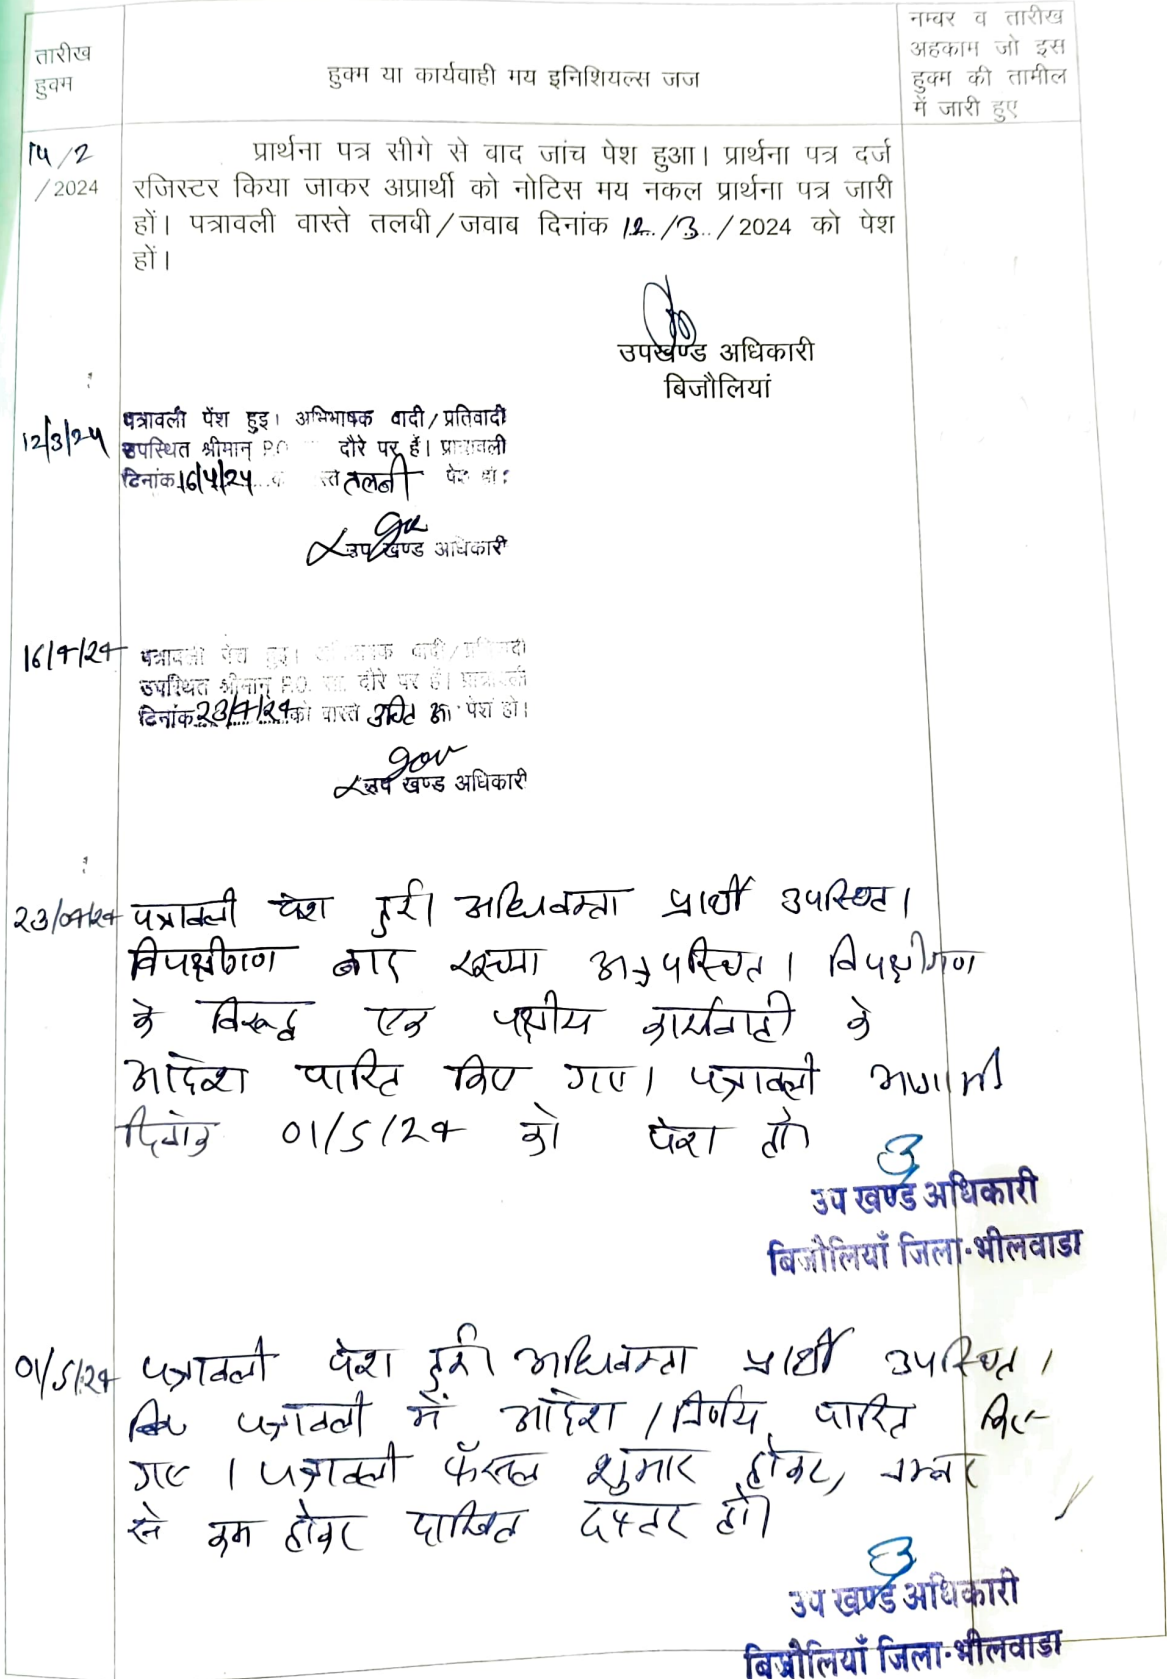 तारीख
हुक्म
हुक्म या कार्यवाही मय इनिशियल्स जज
नम्बर व तारीख
अहकाम जो इस
हुक्म की तामील
में जारी हुए
14/2
/2024
प्रार्थना पत्र सीगे से वाद जांच पेश हुआ। प्रार्थना पत्र दर्ज
रजिस्टर किया जाकर अप्रार्थी को नोटिस मय नकल प्रार्थना पत्र जारी
हों। पत्रावली वास्ते तलबी/जवाब दिनांक 12../3../2024 को पेश
हों।
उपखण्ड अधिकारी
बिजौलियां
12/3/24
पत्रावली पेंश हुइ। अभिभाषक वादी/प्रतिवादी
उपस्थित श्रीमान् P.O. दौरे पर हैं। पत्रावली
दिनांक 16/4/24 तलबी पेश हो।
उप खण्ड अधिकारी
16/4/24
पत्रावली पेश हुइ। अभिभाषक वादी/प्रतिवादी
उपस्थित श्रीमान् P.O. सा. दौरे पर हैं। पत्रावली
दिनांक 23/4/24 को वास्ते उचित आ. पेश हो।
उप खण्ड अधिकारी
23/04/24
पत्रावली पेश हुई। अधिवक्ता प्रार्थी उपस्थित।
विपक्षीगण बाद सूचना अनुपस्थित। विपक्षीगण
के विरूद्ध एक पक्षीय कार्यवाही के
आदेश पारित किए गए। पत्रावली आगामी
दिनांक 01/5/24 को पेश हो।
उप खण्ड अधिकारी
बिजौलियाँ जिला-भीलवाडा
01/5/24
पत्रावली पेश हुई। अधिवक्ता प्रार्थी उपस्थित।
पत्रावली में आदेश/निर्णय पारित किए
गए। पत्रावली फॅसल शुमार होकर, नम्बर
से कम होकर दाखिल दफ्तर हो।
उप खण्ड अधिकारी
बिजौलियाँ जिला-भीलवाडा